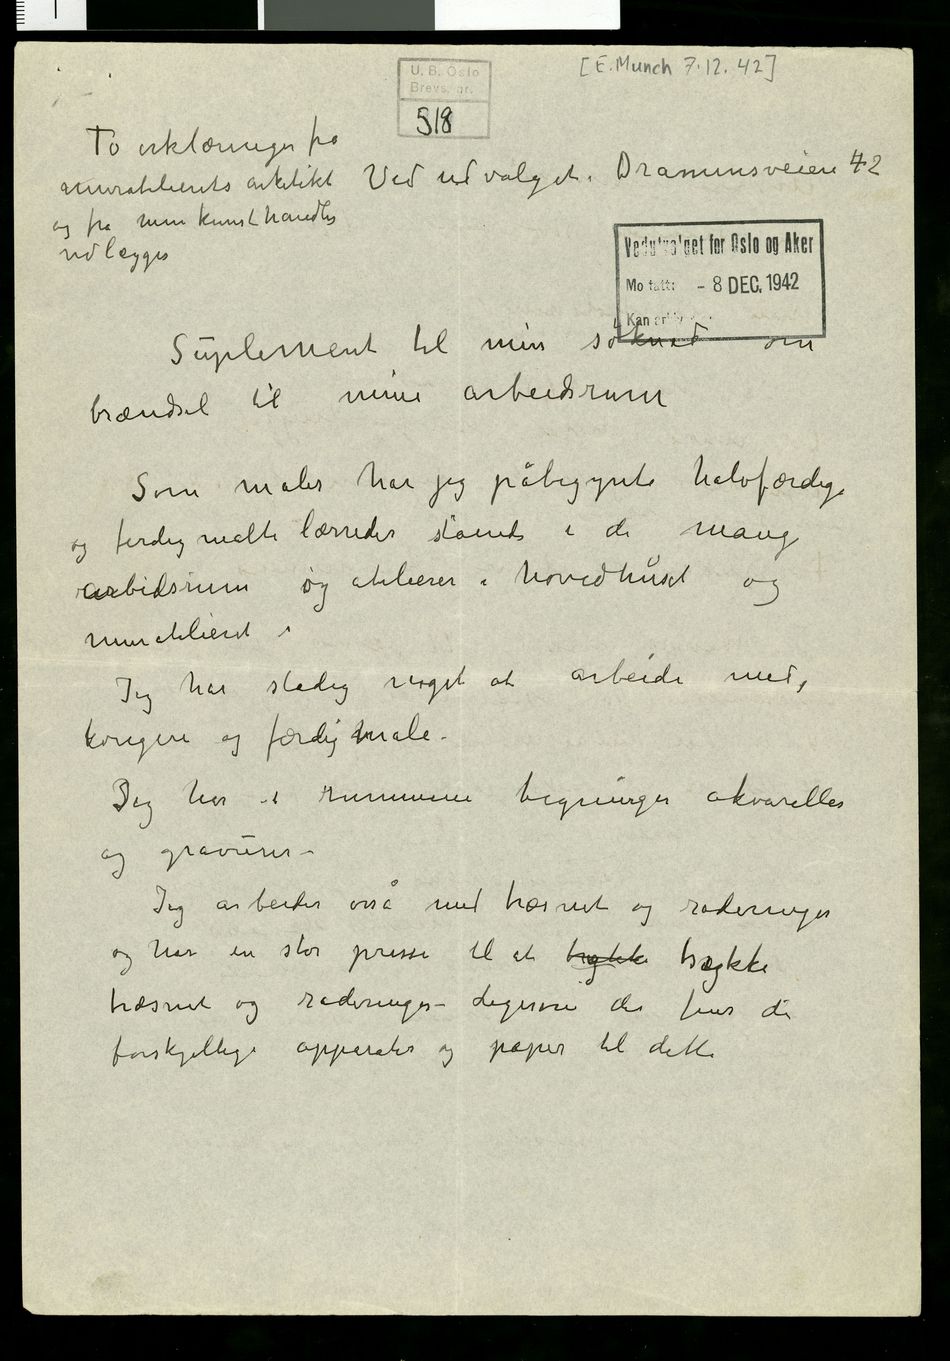 [E. Munch 7.12.42]
U. B. Oslo
Brevs. nr.
518
To erklæringer fra
muratelierets arkitekt
og fra min kunsthandler
vedlægges
Ved udvalget. Drammensveien 42
Vedutvalget for Oslo og Aker
Mottatt: - 8 DEC. 1942
Kan
Suplement til min søknad om
brændsel til mine arbeidsrum
Som maler har jeg påbegynte halvfærdige
og ferdig malte lærreder stående i de mange
arbidsrum og atelierer i hovedhuset og
muratelieret.
Jeg har stadig noget at arbeide med,
korigere og færdig male.
Jeg har i rummene tegninger akvareller
og gravurer –
Jeg arbeider osså med træsnet og raderinger
og har en stor presse til at trykke trykke
træsnet og raderinger – Ligesom der fins de
forskjellige apparater og papir til dette